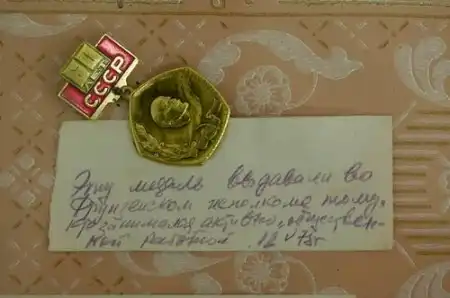 СССР
Эту медаль выдавали во
Фрунзенском исполкоме тому,
кто занимался активно, обществен-
ной работой. 12 V 75г